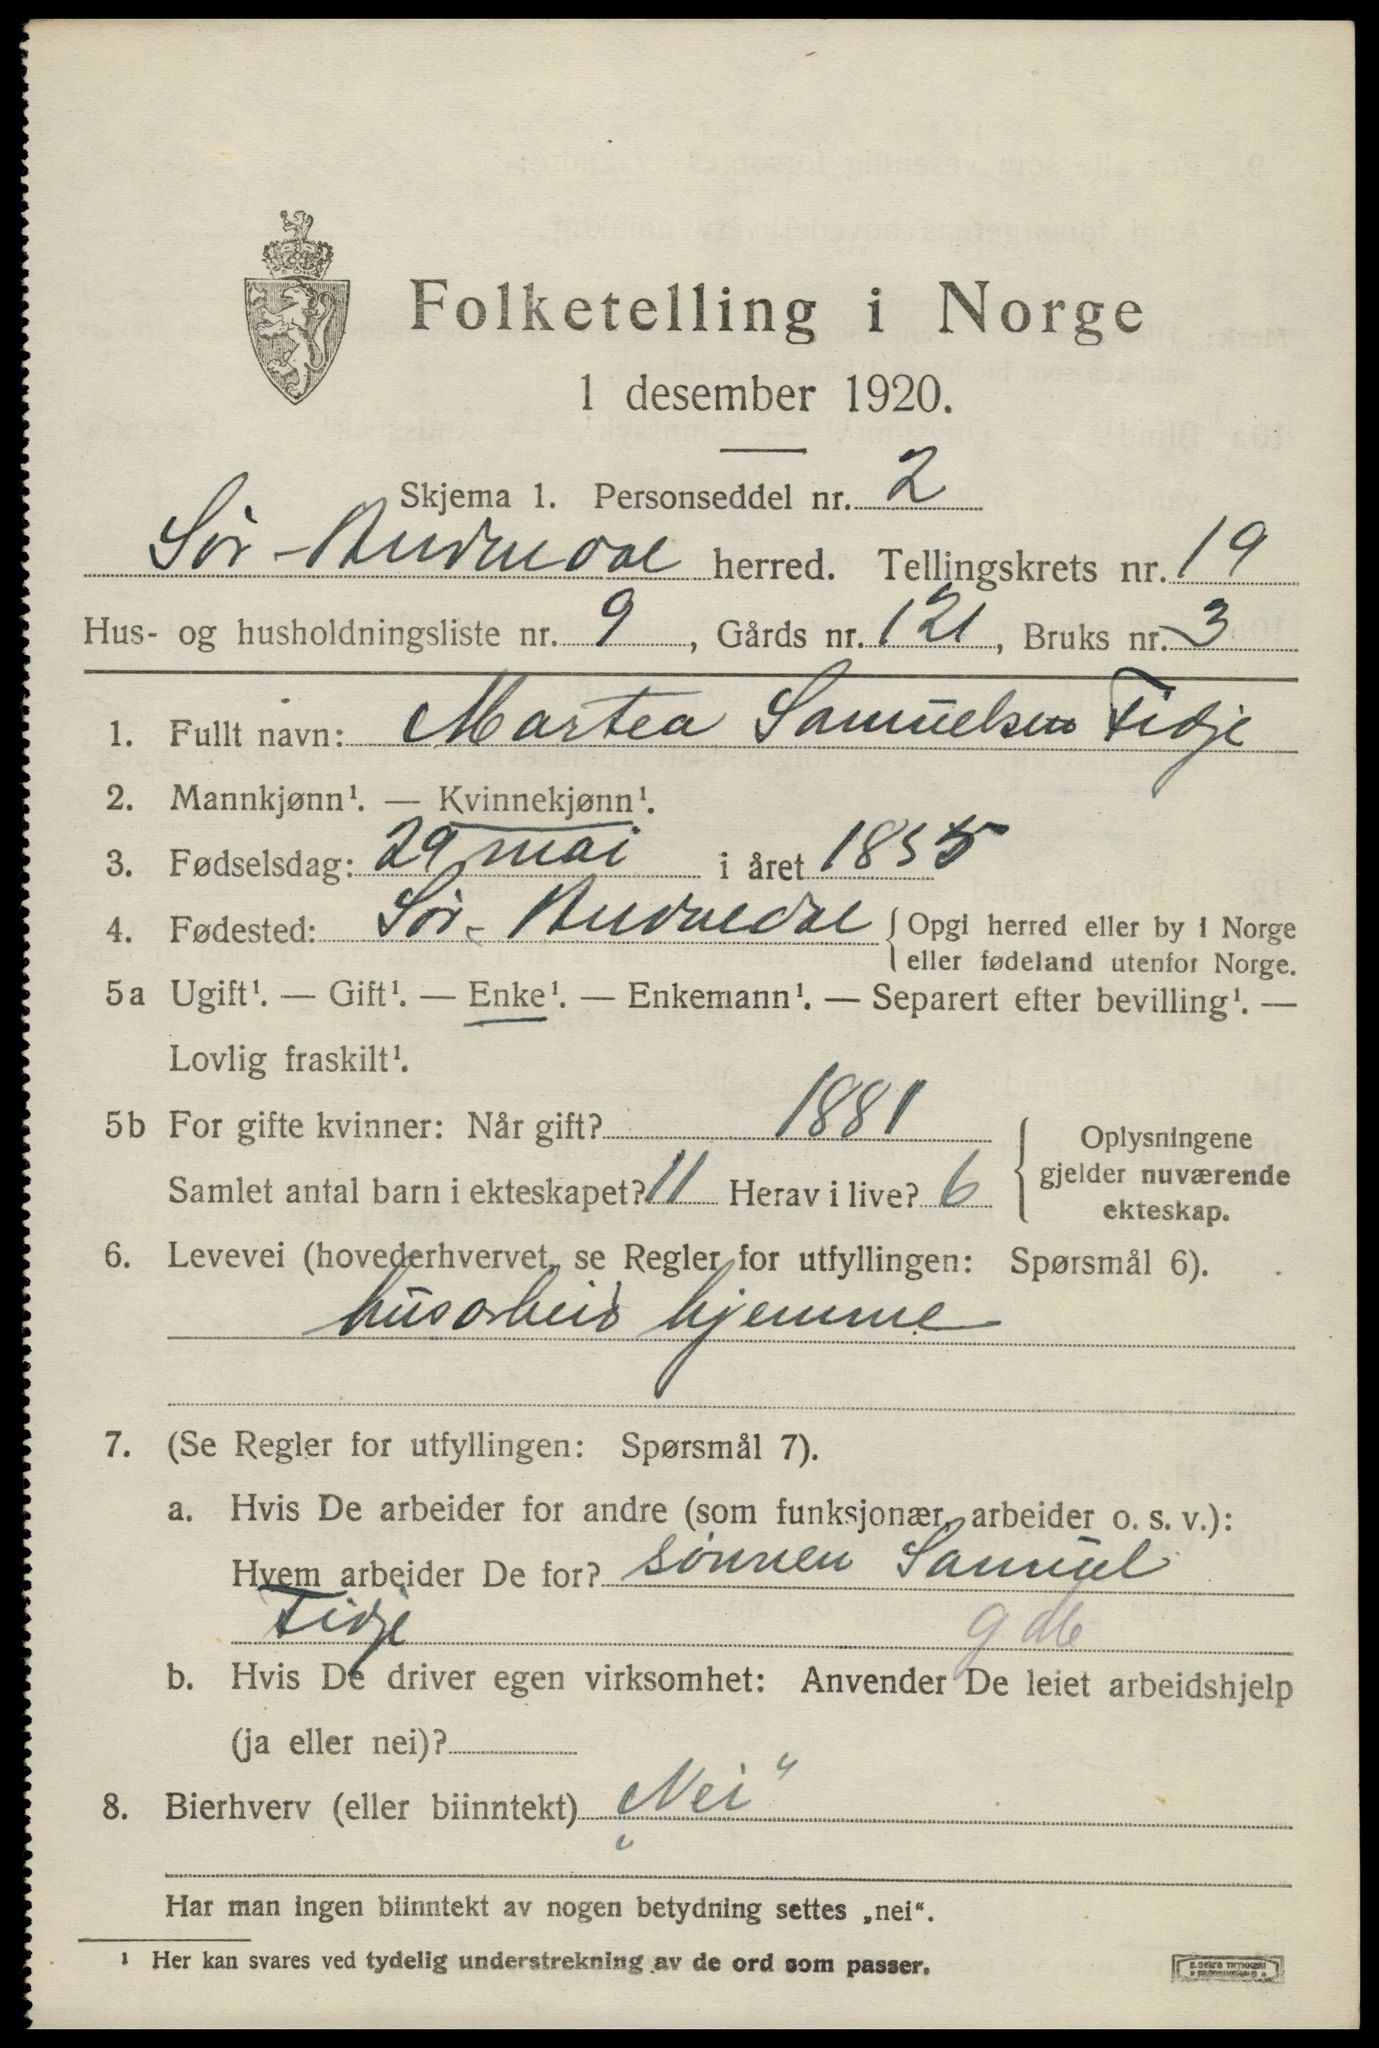 Folketelling i Norge
1 desember 1920.
Skjema 1. Personseddel nr. 2
Sør-Audnedal herred. Tellingskrets nr. 19
Hus- og husholdningsliste nr. 9, Gårds nr. 121, Bruks nr. 3
1. Fullt navn: Martea Samuelsen Tidje
2. Mannkjønn¹. — Kvinnekjønn¹.
3. Fødselsdag: 29 mai i året 1855
4. Fødested: Sør-Audnedal {Opgi herred eller by i Norge
eller fødeland utenfor Norge.
5a Ugift¹. — Gift¹. — Enke¹. — Enkemann¹. — Separert efter bevilling¹. —
Lovlig fraskilt¹.
5b For gifte kvinner: Når gift? 1881
Samlet antal barn i ekteskapet? 11 Herav i live? 6
Oplysningene
gjelder nuværende
ekteskap.
6. Levevei (hovederhvervet, se Regler for utfyllingen: Spørsmål 6).
husarbeid hjemme
7. (Se Regler for utfyllingen: Spørsmål 7).
a. Hvis De arbeider for andre (som funksjonær, arbeider o. s. v.):
Hvem arbeider De for? sønnen Samuel
Tidje
b. Hvis De driver egen virksomhet: Anvender De leiet arbeidshjelp
(ja eller nei)?
8. Bierhverv (eller biinntekt) „Nei“
Har man ingen biinntekt av nogen betydning settes „nei“.
¹ Her kan svares ved tydelig understrekning av de ord som passer.